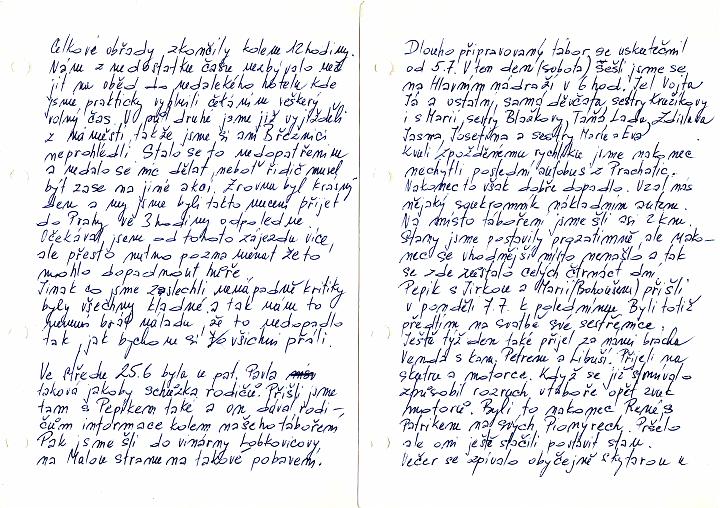 Celkové obřady zkončily kolem 12 hodiny.
Nám z nedostatku času nezbývalo než
jít na oběd do nedalekého hotelu kde
jsme prakticky vyplnili četáním veškerý
volný čas. V půl druhé jsme již vyjížděli
z náměstí takže jsme si ani Březnici
neprohledli. Stalo se to nedopatřením
a nedalo se nic dělat neboť řidič musel
být zase na jiné akci. Zrovna byl krásný
den a my jsme byli takto nuceni přijet
do Prahy ve 3 hodiny odpoledne.
Očekával jsem od tohoto zájezdu více,
ale přesto nutno poznamenat že to
mohlo dopadnout hůře.
Jinak co jsme zaslechli nenápadné kritiky
byly všechny kladné a tak nám to
nemusí brát náladu, že to nedopadlo
tak jak bychom si to všichni přáli.
Ve středu 25.6 byla u pat. Pavla
taková jakoby schůzka rodičů. Přišli jsme
tam s Pepíkem také a on dával rodi-
čům informace kolem našeho táboření
Pak jsme šli do vinárny Lobkovicový
na Malou stranu na takové pobavení.
Dlouho připravovaný tábor se uskutečnil
od 5.7. V ten den (sobota) sešli jsme se
na Hlavním nádraží v 6 hod. Jel Vojta
Já a ostatní, samá děvčata, sestry Kružíkovy
i s Marií, sestry Blažkovy, Táňa Lada, Zdislava
Jasma, Josefína a sestry Marie a Eva
Kvůli zpožděnému rychlíku jsme nakonec
nechytli poslední autobus z Prachatic.
Nakonec to však dobře dopadlo. Vzal nás
nějaký soukromník nákladním autem.
Na místo táboření jsme šli asi 2 km.
Stany jsme postavily prozatimně, ale nako-
nec se vhodnější místo nenašlo a tak
se zde zůstalo celých čtrnáct dní.
Pepík s Jirkou a Marií (Bohoušem) přišli
v pondělí 7.7. k poledninu. Byli totiž
předtím na svatbě své sestřenice.
Ještě týž den také přijel za námi brácha
Venda s kam. Petrem a Libuší. Přijeli na
skútru a motorce. Když se již stmívalo
způsobil rozruch v táboře opět zvuk
motorů. Byli to nakonec René s
Patrikem na svých Pionýrech. Pršelo
ale oni ještě stačili postavit stan.
Večer se zpívalo obyčejně s kytarou u